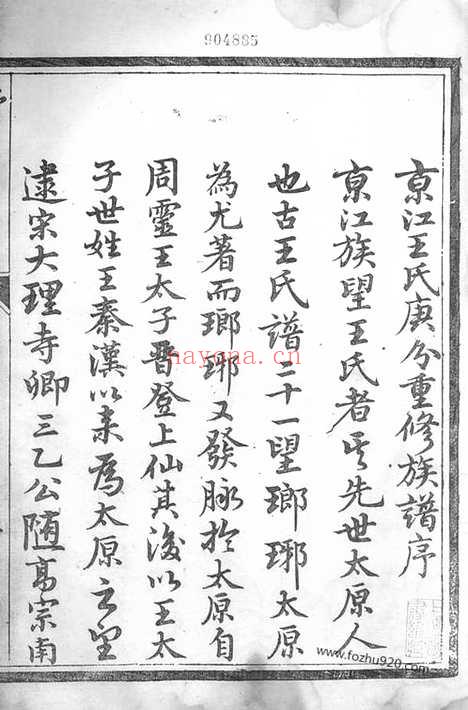 904885
京江王氏庚分重修族譜序
京江族望王氏者其先世太原人
也古王氏譜二十一望瑯琊太原
為尤著而瑯琊又發脉於太原自
周靈王太子晋登上仙其後以王太
子世姓王秦漢以来為太原之望
逮宋大理寺卿三乙公随髙宗南
hayona.cn
www.fozhu920.com